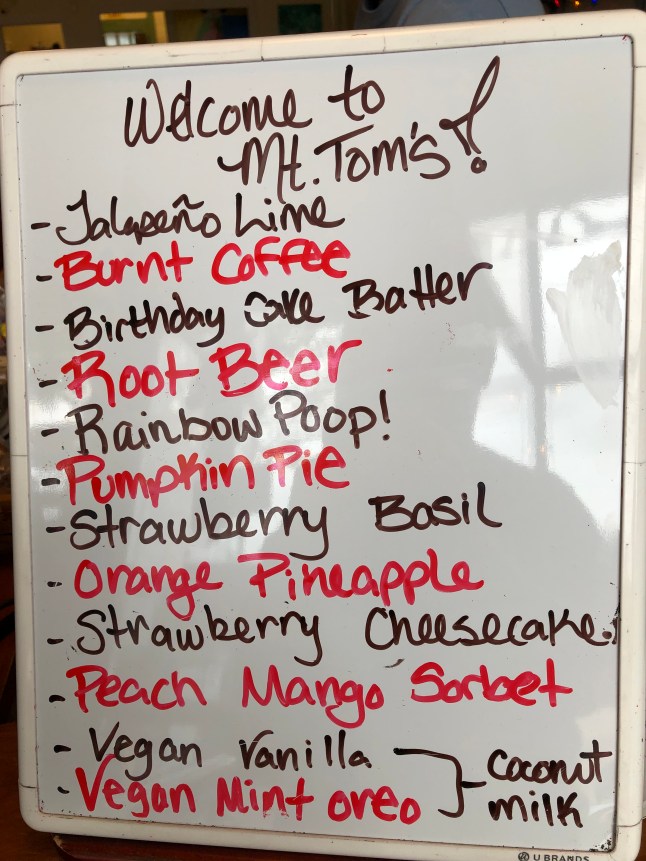 Welcome to
Mt. Tom's!
- Jalapeño Lime
- Burnt Coffee
- Birthday Cake Batter
- Root Beer
- Rainbow Poop!
- Pumpkin Pie
- Strawberry Basil
- Orange Pineapple
- Strawberry Cheesecake.
- Peach Mango Sorbet
- Vegan Vanilla
- Vegan Mint oreo
coconut
milk
U BRANDS